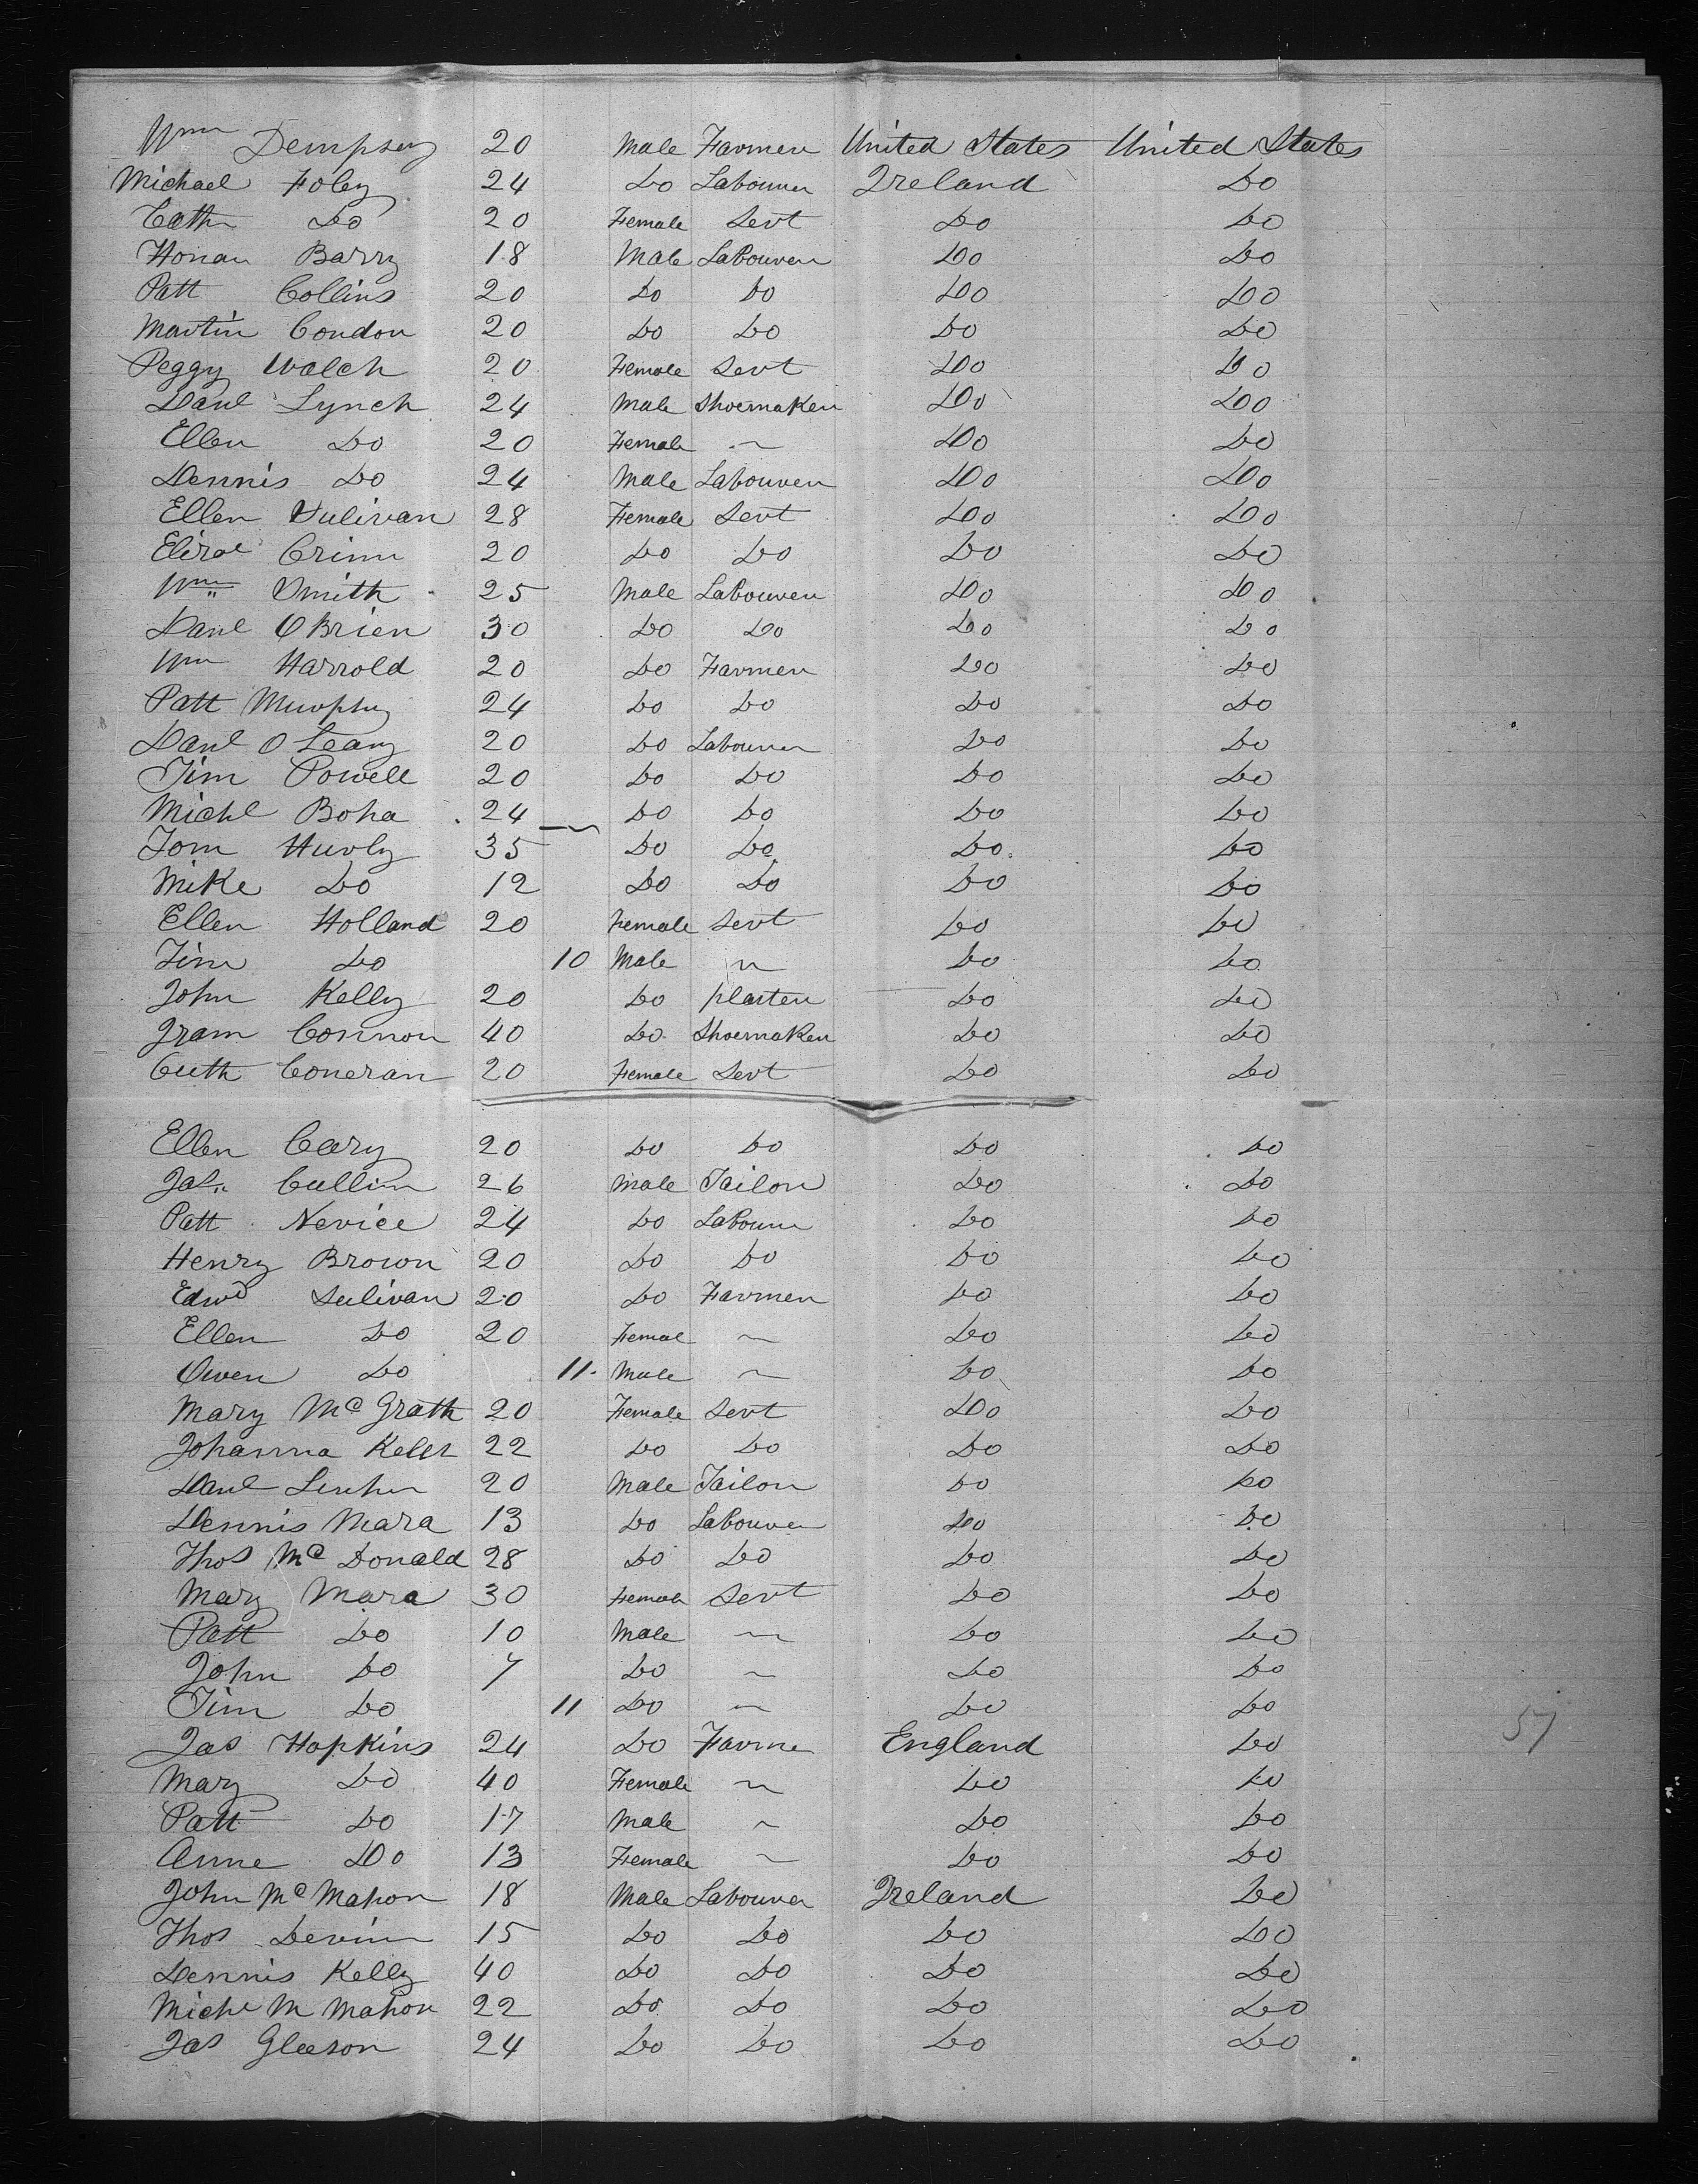 Wm Dempsey 20 Male Farmer United States United States
Michael Foley 24 Do Labourer Ireland Do
Cath Do 20 Female Sevt Do Do
Honan Barry 18 Male Labourer Do Do
Patt Collins 20 Do Do Do Do
Martin Condon 20 Do Do Do Do
Peggy Walch 20 Female Sevt Do Do
Danl Lynch 24 Male Shoemaker Do Do
Ellen Do 20 Female ~ Do Do
Dennis Do 24 Male Labourer Do Do
Ellen Sulivan 28 Female Sevt Do Do
Crimn 20 Do Do Do Do
Wm Smith 25 Male Labourer Do Do
Danl O Brien 30 Do Do Do Do
Wm Harrold 20 Do Farmer Do Do
Patt Murphy 24 Do Do Do Do
Danl O Leary 20 Do Labourer Do Do
Tim Powell 20 Do Do Do Do
Michl Boha 24 Do Do Do Do
Tom Hurly 35 Do Do Do Do
Mike Do 12 Do Do Do Do
Ellen Holland 20 Female Sevt Do Do
Tim Do 10 Male ~ Do Do
John Kelly 20 Do plaster Do Do
Connor 40 Do Shoemaker Do Do
Cuth Coneran 20 Female Sevt Do Do
Ellen Cary 20 Do Do Do Do
Jas Cullin 26 Male Tailor Do Do
Patt Nevice 24 Do Labourer Do Do
Henry Brown 20 Do Do Do Do
Edwd Sulivan 20 Do Farmer Do Do
Ellen Do 20 Femal ~ Do Do
Owen Do 11 Male ~ Do Do
Mary Mc Grath 20 Female Sevt Do Do
Johanna 22 Do Do Do Do
Danl 20 Male Tailor Do Do
Dennis Mara 13 Do Labourer Do Do
Thos Mc Donald 28 Do Do Do Do
Mary Mara 30 Female Sevt Do Do
Patt Do 10 Male ~ Do Do
John Do 7 Do ~ Do Do
Tim Do 11 Do ~ Do Do
57
Jas Hopkins 24 Do Farme England Do
Mary Do 40 Female ~ Do Do
Patt Do 17 Male ~ Do Do
Anne Do 13 Female ~ Do Do
John Mc Mahon 18 Male Labourer Ireland Do
Thos Devin 15 Do Do Do Do
Dennis Kelly 40 Do Do Do Do
Michl M Mahon 22 Do Do Do Do
Jas Gleeson 24 Do Do Do Do